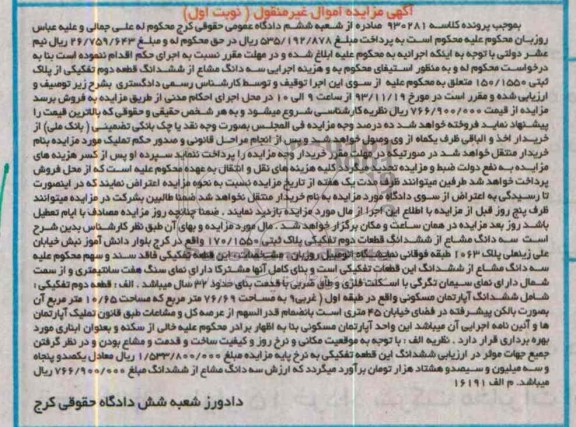 آگهی مزایده اموال غیرمنقول ( نوبت اول)
بموجب پرونده کلاسه ۹۳۰۴۸۱ صادره از شعبه ششم دادگاه عمومی حقوقی کرج محکوم له علی جمالی و علیه عباس
روزبان محکوم علیه محکوم است به پرداخت مبلغ ۵۳۵/۱۹۲/۸۷۸ ریال در حق محکوم له و مبلغ ۲۶/۷۵۹/۶۴۳ ریال نیم
عشر دولتی با توجه به اینکه اجرائیه به محکوم علیه ابلاغ شده و در مهلت مقرر نسبت به اجرای حکم اقدام ننموده است بنا به
درخواست محکوم له و به منظور استیفای محکوم به و هزینه اجرایی سه دانگ مشاع از ششدانگ قطعه دوم تفکیکی از پلاک
ثبتی ۱۵۰/۱۵۵۰ متعلق به محکوم علیه از سوی این اجرا توقیف و توسط کارشناس رسمی دادگستری بشرح زیر توصیف و
ارزیابی شده و مقرر است در مورخ ۹۳/۱۱/۱۹ از ساعت ۹ الی ۱۰ در محل اجرای احکام مدنی از طریق مزایده به فروش برسد
مزایده از قیمت ۷۶۶/۹۰۰/۰۰۰ ریال نظریه کارشناسی شروع میشود و به هر شخص حقیقی و حقوقی که بالاترین قیمت را
پیشنهاد نماید فروخته خواهد شد ده درصد وجه مزایده فی المجلس بصورت وجه نقد یا چک بانکی تضمینی ( بانک ملی) از
خریدار اخذ و الباقی ظرف یکماه از وی وصول خواهد شد و پس از انجام مراحل قانونی و صدور حکم تملیک مورد مزایده بنام
خریدار منتقل خواهد شد در صورتیکه در مهلت مقرر خریدار وجه مزایده را پرداخت ننماید سپرده او پس از کسر هزینه های
مزایده به نفع دولت ضبط و مزایده تجدید میگردد کلیه هزینه های نقل و انتقال به عهده محکوم علیه است که از محل فروش
پرداخت خواهد شد طرفین میتوانند ظرف مدت یک هفته از تاریخ مزایده نسبت به نحوه مزایده اعتراض نمایند که در اینصورت
تا رسیدگی به اعتراض از سوی دادگاه مورد مزایده به نام خریدار منتقل نخواهد شد ضمنا طالبین بشرکت در مزایده میتوانند
ظرف پنج روز قبل از مزایده با اطلاع این اجرا از مال مورد مزایده بازدید نمایند . ضمنا چنانچه روز مزایده مصادف با ایام تعطیل
باشد روز بعد مزایده در همان ساعت و مکان برگزار خواهد شد . مال مورد مزایده و بهای آن طبق نظر کارشناس بدین شرح
است سه دانگ مشاع از ششدانگ قطعات دوم تفکیکی پلاک ثبتی ۱۷۰/۱۵۵۰ واقع در کرج بلوار دانش آموز نبش خیابان
علی زینعلی پلاک ۱۰۶۳ طبقه فوقانی نمایشگاه اتومبیل روزبان . مشخصات این قطعه تفکیکی فاقد سند و سهم محکوم علیه
سه دانگ مشاع از ششدانگ این قطعات تفکیکی است و بنای کامل آنها مشترکا دارای نمای سنگ هفت سانتیمتری و از سمت
شمال دارای نمای سیمان تگرگی با اسکلت فلزی و طاق ضربی با قدمت بنای حدود ۳۲ سال میباشد . الف : قطعه دوم تفکیکی :
شامل ششدانگ آپارتمان مسکونی واقع در طبقه اول ( غربی) به مساحت ۷۶/۶۹ متر مربع که مساحت ۱۰/۶۵ متر مربع آن
بصورت بالکن پیشرفته در فضای خیابان ۴۵ متری است بانضمام قدر السهم از عرصه کل و مشاعات طبق قانون تملیک آپارتمان
ها و آئین نامه اجرایی آن میباشد این واحد آپارتمان مسکونی بنا به اظهار برادر محکوم علیه خالی از سکنه و بعنوان انباری مورد
بهره برداری قرار دارد . نظریه الف : با توجه به موقعیت مکانی و نرخ روز و کیفیت ساخت و قدمت و مشاع بودن و در نظر گرفتن
جمیع جهات موثر در ارزیابی ششدانگ این قطعه تفکیکی به نرخ پایه مزایده مبلغ ۱/۵۳۳/۸۰۰/۰۰۰ ریال معادل یکصدو پنجاه
و سه میلیون و سیصدو هشتاد هزار تومان برآورد میگردد که ارزش سه دانگ مشاع از ششدانگ مبلغ ۷۶۶/۹۰۰/۰۰۰ ریال
میباشد. م الف ۱۶۱۹۱
دادورز شعبه شش دادگاه حقوقی کرج